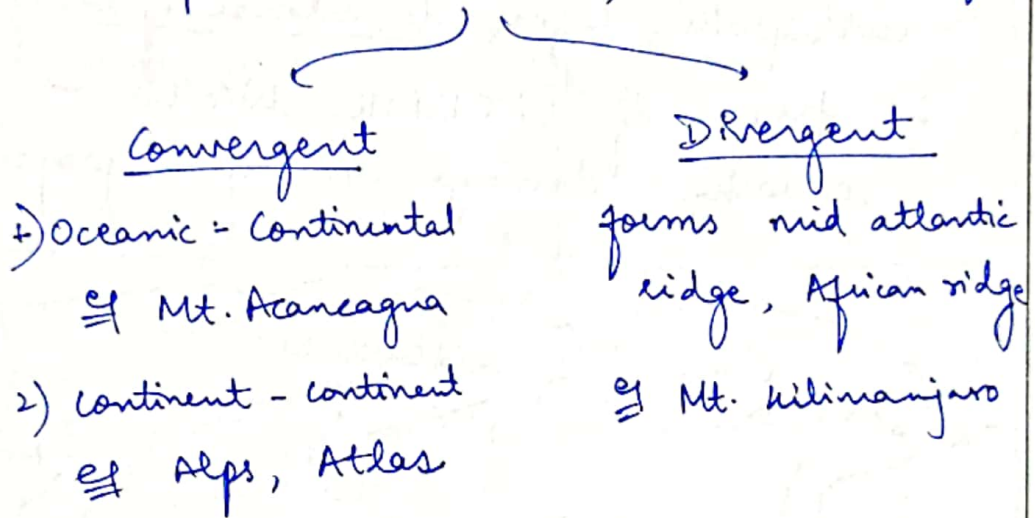 Convergent
1) Oceanic - Continental
eg Mt. Acancagna
2) Continent - Continent
eg Alps, Atlas
Divergent
forms mid atlantic
ridge, African ridge
eg Mt. Kilimanjaro